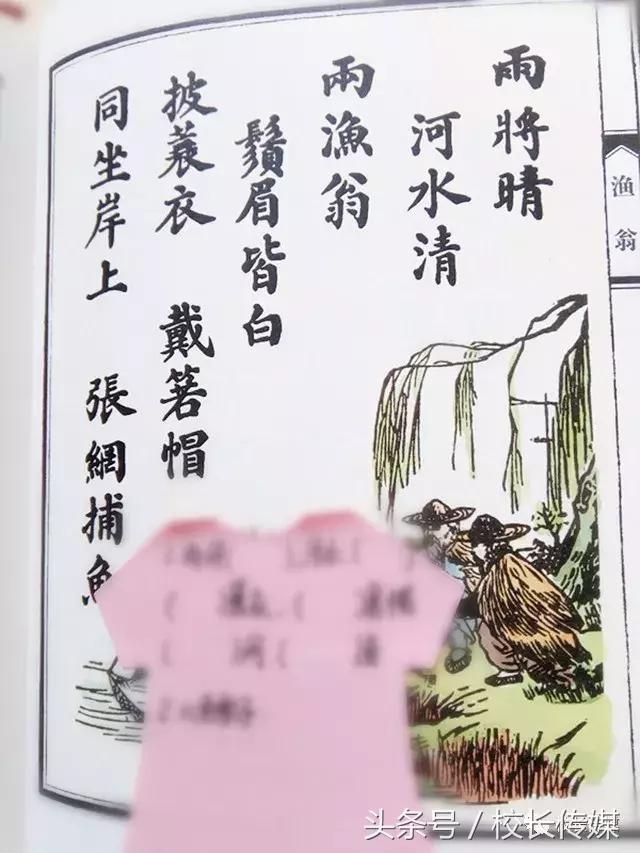 雨將晴
河水清
兩漁翁
鬚眉皆白
披蓑衣 戴箬帽
同坐岸上 張網捕魚
渔翁
头条号／校长传媒